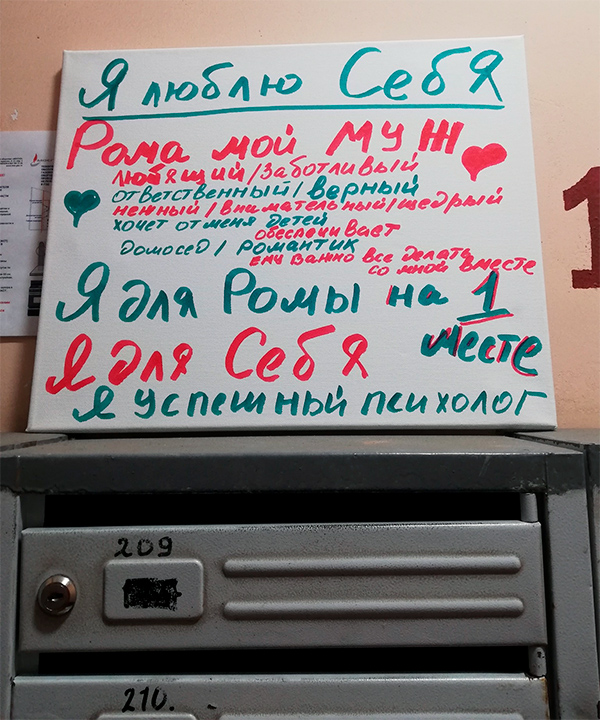 Я люблю Себя
Рома мой МУЖ
любящий/заботливый
ответственный/верный
нежный/внимательный/щедрый
хочет от меня детей
обеспечивает
домосед/романтик
ему важно все делать
со мной вместе
Я для Ромы на 1
месте
Я для Себя
я успешный психолог
1
209
210.